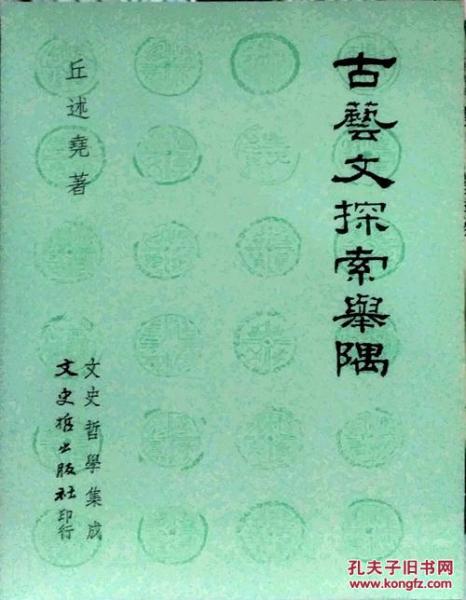 古藝文探索舉隅
丘述堯著
文史哲學集成
文史哲出版社印行
孔夫子旧书网
www.kongfz.com